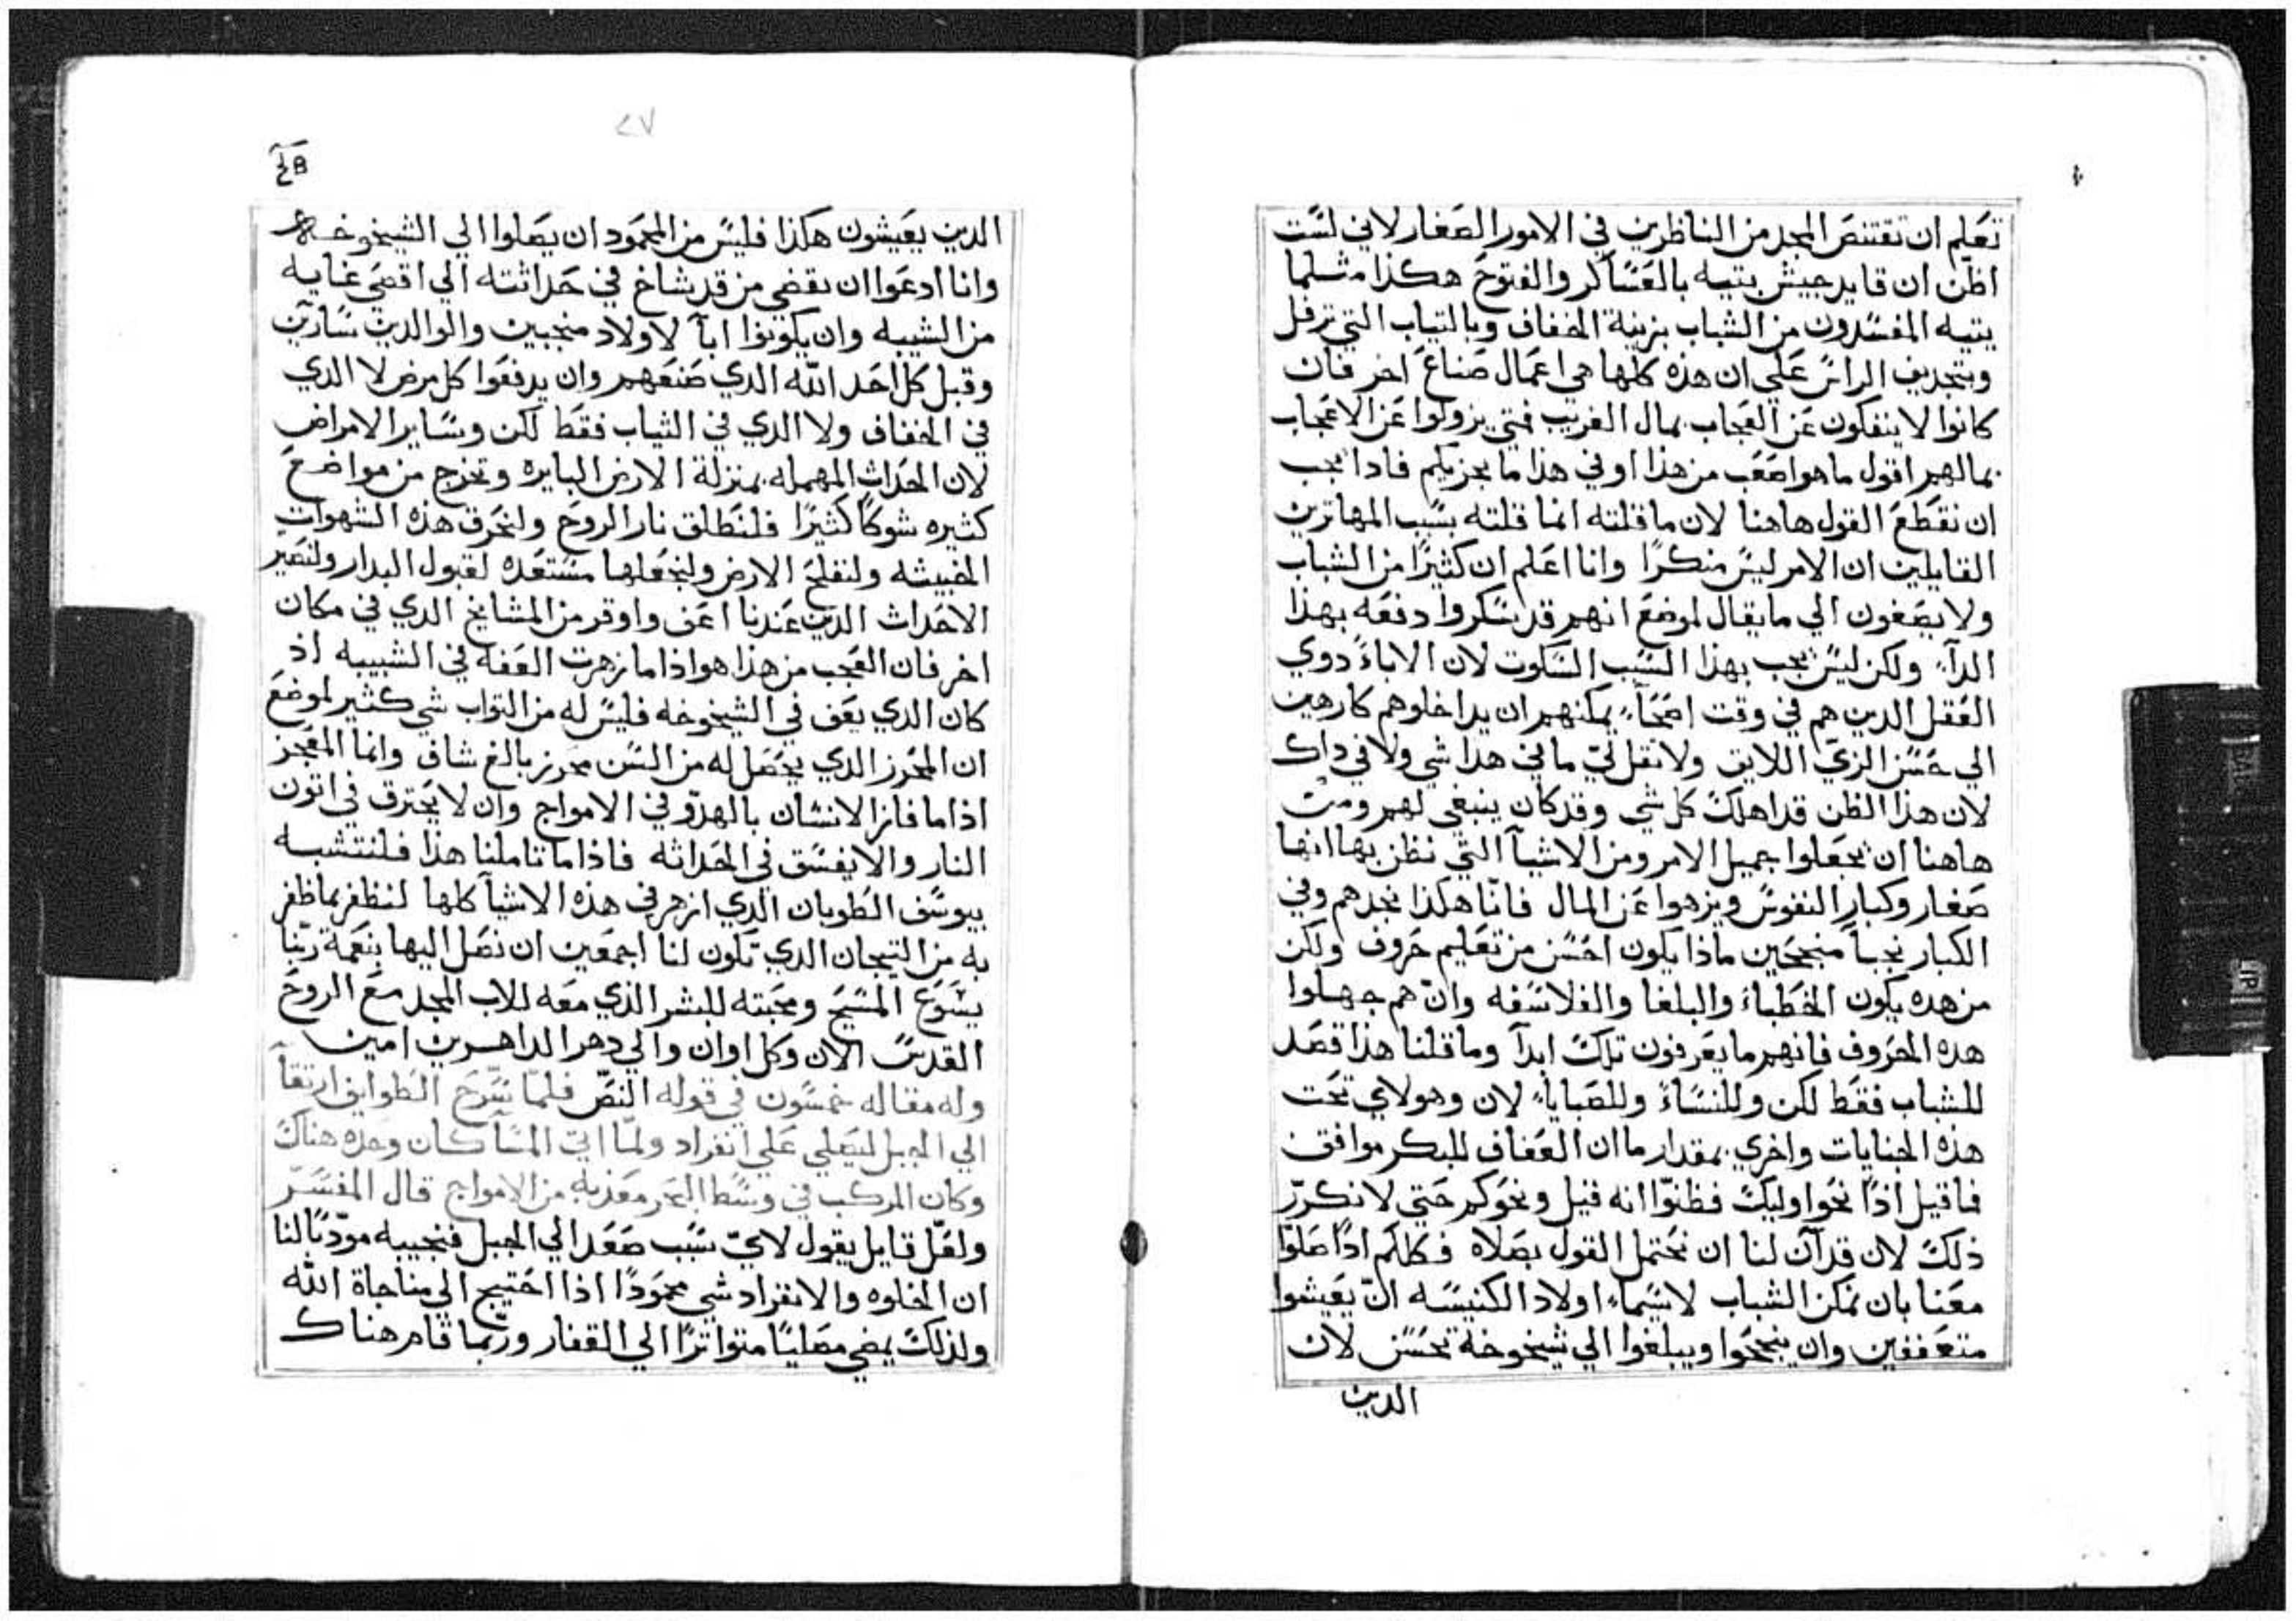 تعلم ان تقتنص المجد من الناظرين في الامور الصغار لاني لست
اظن ان قايد جيش يتيه بالعساكر والفتوح هكذا مثلما
يتيه المفسدون من الشباب بزينة الخفاف وبالتياب التي ترفل
وبتجديف الراس علي ان هذه كلها هي اعمال صناع اخر فان
كانوا لا ينفكون عن العجاب بمال الغريب فمتي يزولوا عن الاعجاب
بمالهم اقول ما هو اصعب من هذا او في هذا ما يجزيكم فادا يجب
ان نقطع القول هاهنا لان ما قلته انما قلته بسبب المهاترين
القايلين ان الامر ليس منكرًا وانا اعلم ان كثيرًا من الشباب
ولا يصغون الي ما يقال لموضع انهم قد سكروا دفعه بهذا
الدآء ولكن ليس يجب بهذا السبب السكوت لان الاباء دوي
العقل الدين هم في وقت اصحآء يمكنهم ان يداخلوهم كارهين
الي حسن الزي اللايق ولا تقل لي ما في هدا شي ولا في داك
لان هذا الظن قد اهلك كل شي وقد كان ينبغي لهم ومن
هاهنا ان يجعلوا جميل الامر ومن الاشيآ التي نظن بها انها
صغار وكبار النفوس ويزهوا عن المال فانّا هكذا نجدهم وفي
الكبار نجبآ منجحين ماذا يكون احسن من تعليم حروف ولكن
من هده يكون الخطباء والبلغا والفلاسفه وان هم جهلوا
هده الحروف فانهم ما يعرفون تلك ابدآ وما قلنا هذا قصد
للشباب فقط لكن وللنساء وللصبايآء لان وهولاي تحت
هذه الجنايات واخري بمقدار ما ان العفاف للبكر موافق
فما قيل اذًا نحو اوليك فظنوا انه قيل ونحوكم حتي لا نكرّر
ذلك لان قد آن لنا ان نختم القول بصلاه فكلكم اذًا صلّوا
معنا بان نمكن الشباب لا سيماء اولاد الكنيسه ان يعيشوا
متعففين وان ينجحوا ويبلغوا الي شيخوخة تحسن لان
الدين
٤٧
الدين يعيشون هكذا فليس من المحمود ان يصلوا الي الشيخوخه
وانا ادعوا ان نقضي من قد شاخ في حداثته الي اقصي غايه
من الشيبه وان يكونوا ابآ لاولاد منجبين والوالدين سارّين
وقبل كل احد الله الدي صنعهم وان يدفعوا كل مرض لا الدي
في الخفاف ولا الدي في الثياب فقط لكن وساير الامراض
لان الحداث المهمله بمنزلة الارض البايره وتخرج من مواضع
كثيره شوكًا كثيرًا فلنطلق نار الروح ولنحرق هذه الشهوات
الخبيشه ولنفلح الارض ولنجعلها مستعده لقبول البدار ولنصير
الاحداث الدين عندنا اعف واوقر من المشايخ الدي في مكان
اخر فان العجب من هذا هو اذا ما زهرت العفه في الشبيبه اذ
كان الدي يعف في الشيخوخه فليس له من التواب شي كثير لموضع
ان المحرز الدي يحصل له من السن محرز بالغ شاف وانما المعجز
اذا ما فاز الانسان بالهدّو في الامواج وان لا يحترق في اتون
النار والا يفسق في الحداثه فاذا ما تاملنا هذا فلنتشبه
بيوسف الطوبان الدي ازهر في هذه الاشيآ كلها لنظفر بما ظفر
به من التيجان الدي تكون لنا اجمعين ان نصل اليها بنعمة ربّنا
يسوع المسيح ومحبته للبشر الذي معه للاب المجد مع الروح
القدس الان وكل اوان والي دهر الداهرين امين
وله مقاله خمسون في قوله النصّ فلمّا سرّح الطوايف ارتقآ
الي الجبل ليصلي علي انفراد ولمّا اتي المسآ كان وحده هناك
وكان المركب في وسط البحر معذبه من الامواج قال المفسّر
ولعلّ قايل يقول لايّ سبب صعد الي الجبل فنجيبه مودّبًا لنا
ان الخلوه والانفراد شي محمودًا اذا احتيج الي مناجاة الله
ولذلك يمضي مصليًا متواترًا الي القفار وربّما قام هناك